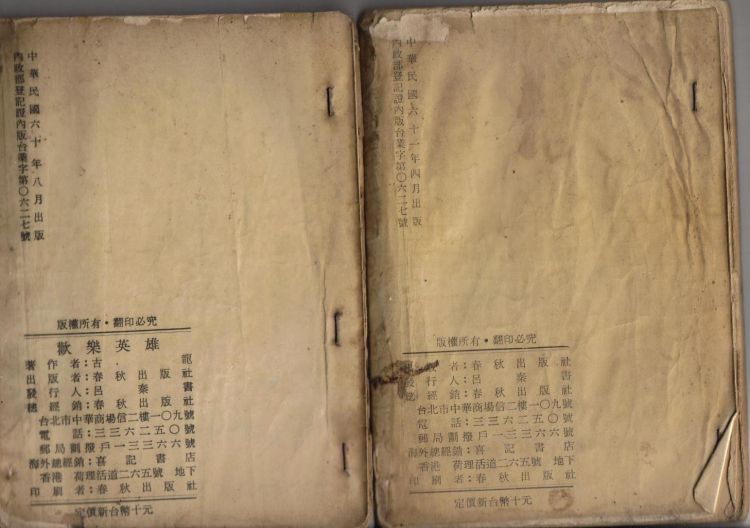 中華民國六十年八月出版
內政部登記證內版台業字第〇六二七號
版權所有・翻印必究
歡樂英雄
著作者:古龍
出版者:春秋出版社
發行人:呂秦書
總經銷:春秋出版社
台北市中華商場信二樓一〇九號
電話:三三六二五〇號
郵局劃撥戶一三三六六號
海外總經銷:喜記書店
香港 荷理活道二六五號 地下
印刷者:春秋出版社
定價新台幣十元
中華民國六十一年四月出版
內政部登記證內版台業字第〇六二七號
版權所有・翻印必究
者:春秋出版社
發行人:呂秦書
總經銷:春秋出版社
台北市中華商場信二樓一〇九號
電話:三三六二五〇號
郵局劃撥戶一三三六六號
海外總經銷:喜記書店
香港 荷理活道二六五號 地下
印刷者:春秋出版社
定價新台幣十元